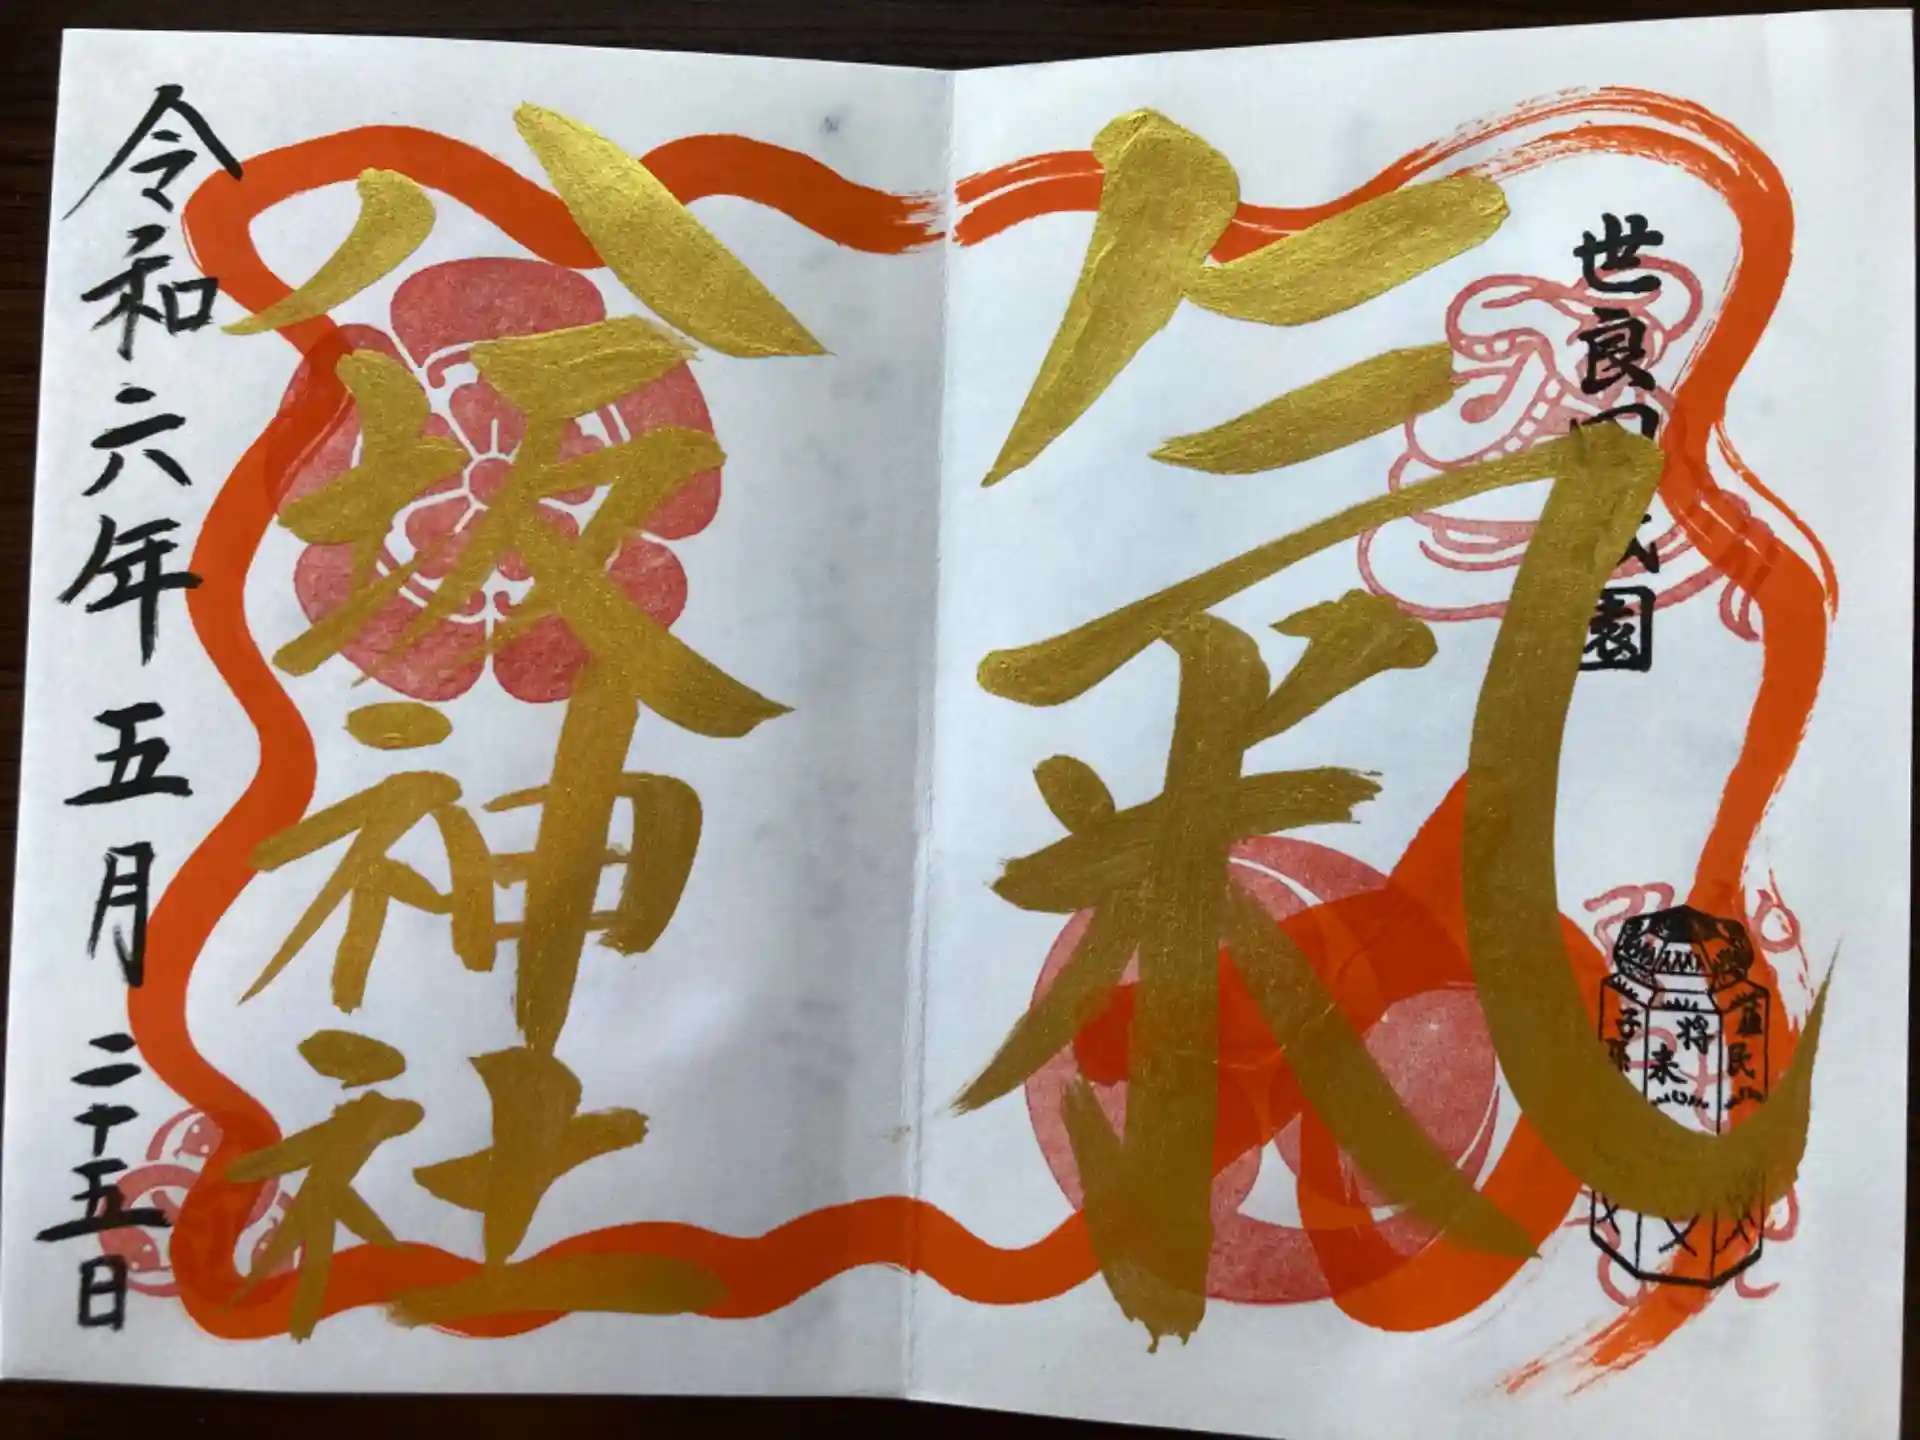 世良田祇園
氣
蘇民
将来
子孫
八坂神社
令和六年五月二十五日